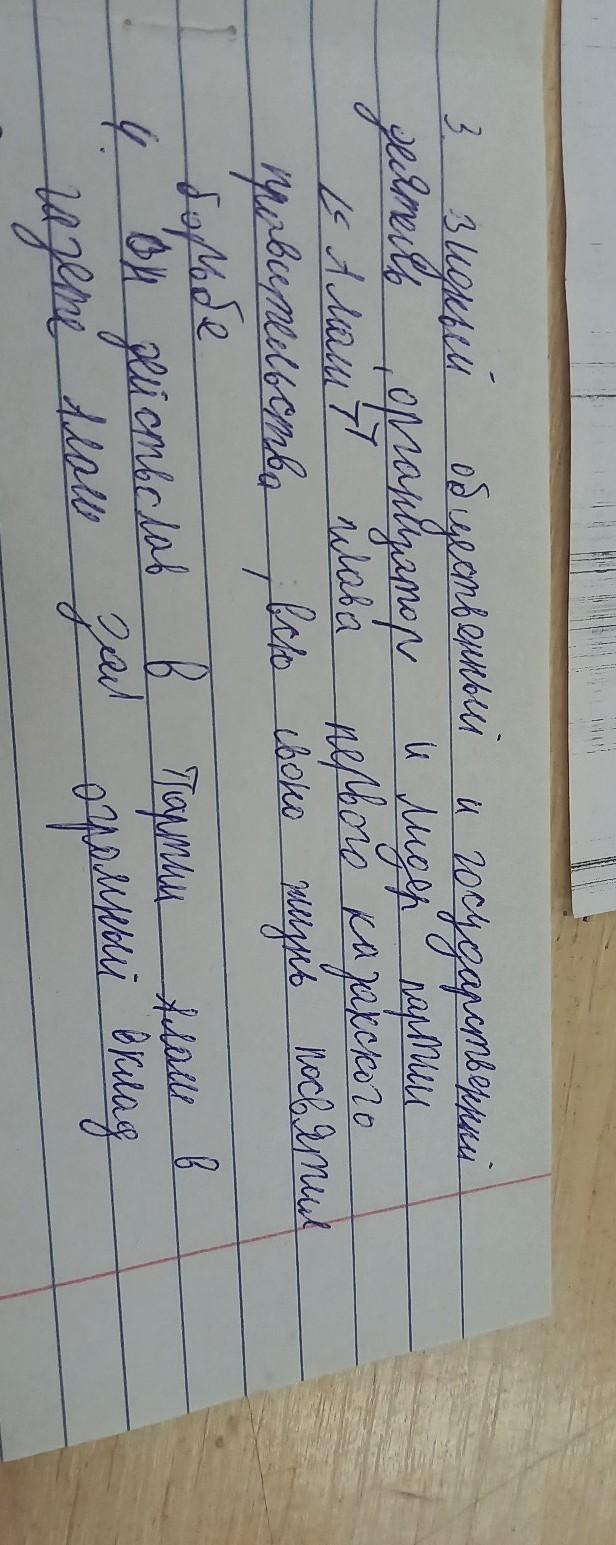 3. Видный общественный и государственный
деятель, организатор и лидер партии
"Алаш" глава первого казахского
правительства, всю свою жизнь посвятил
борьбе
4. Он действовав в Партии Алаш в
газете Алаш дал огромный вклад